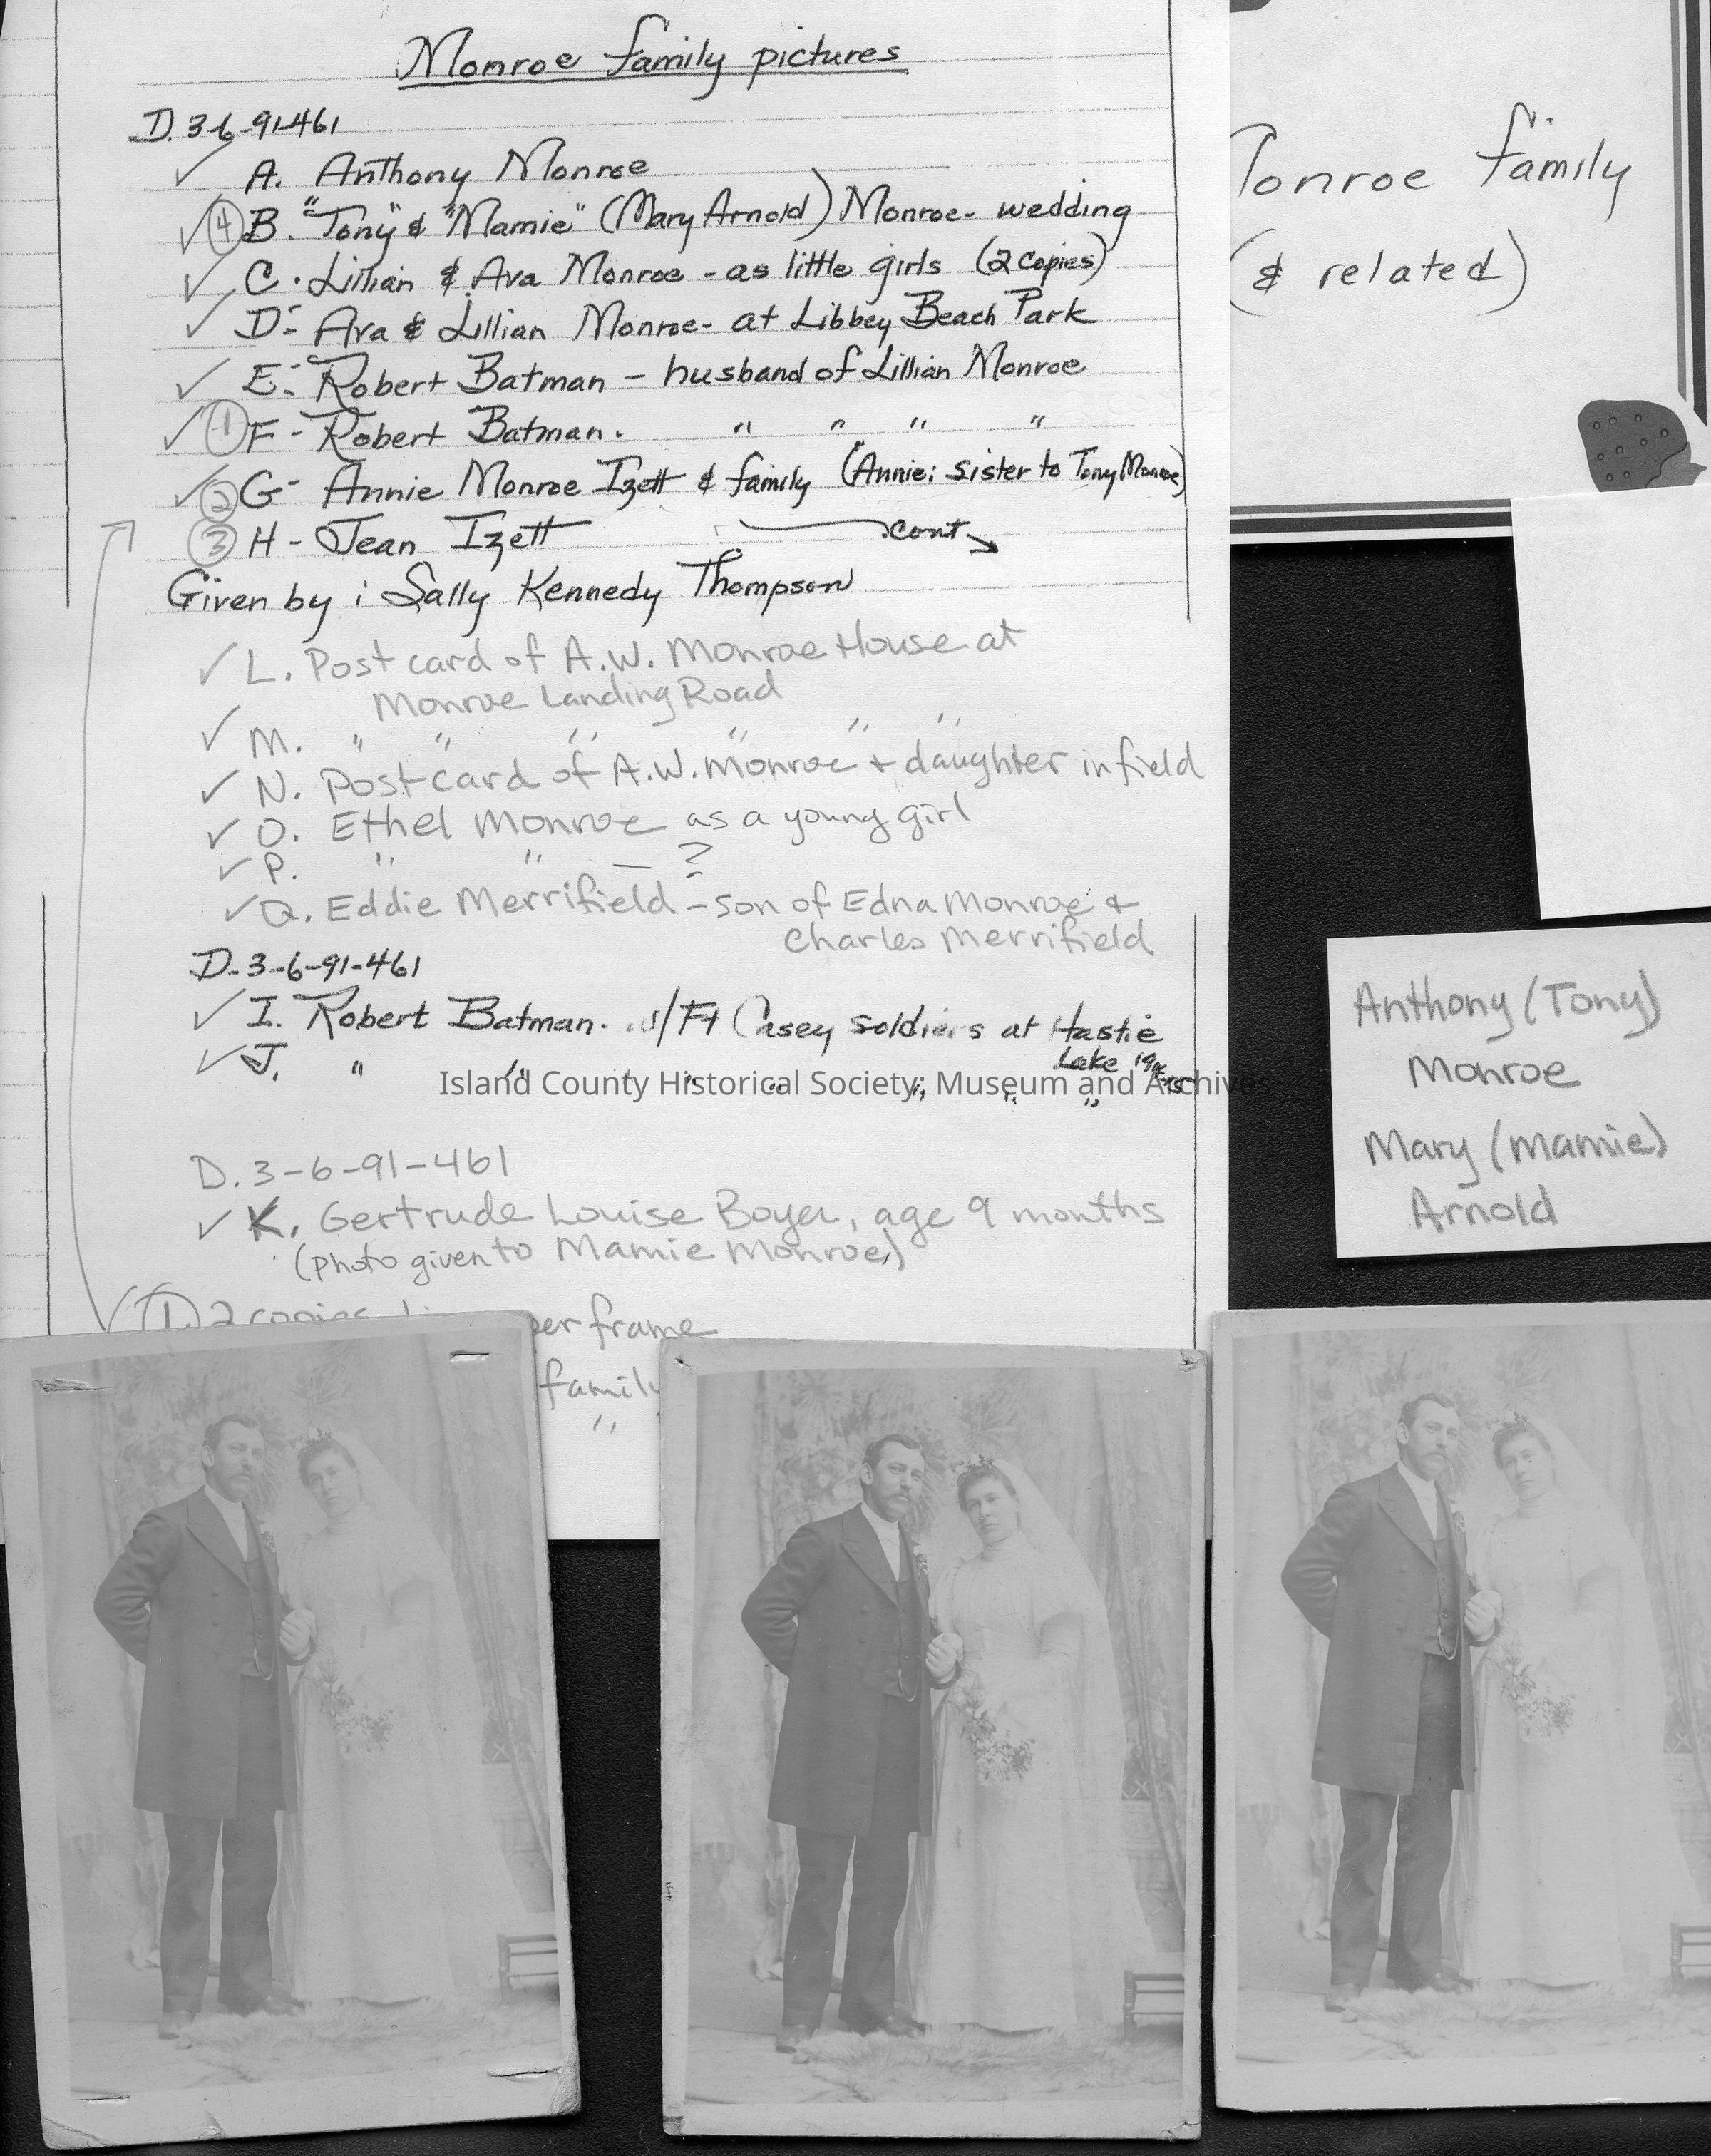 Monroe family pictures
D. 3-6-91-461
✓ A. Anthony Monroe
✓ ④ B. "Tony" & "Mamie" (Mary Arnold) Monroe - wedding
✓ C. Lillian & Ava Monroe - as little girls (2 copies)
✓ D - Ava & Lillian Monroe - at Libbey Beach Park
✓ E - Robert Batman - husband of Lillian Monroe
✓ ① F - Robert Batman. " " " "
✓ ② G - Annie Monroe Izett & family (Annie: sister to Tony Monroe)
③ H - Jean Izett cont →
Given by : Sally Kennedy Thompson
✓ L. Post card of A.W. Monroe House at
Monroe Landing Road
✓ M. " " " " " "
✓ N. Postcard of A.W. Monroe + daughter in field
✓ O. Ethel Monroe as a young girl
✓ P. " " — ?
✓ Q. Eddie Merrifield - son of Edna Monroe +
Charles Merrifield
D-3-6-91-461
✓ I. Robert Batman. w/Ft Casey soldiers at Hastie
Lake
✓ J. " " " " " " "
Island County Historical Society, Museum and Archives
D. 3-6-91-461
✓ K. Gertrude Louise Boyer, age 9 months
(photo given to Mamie Monroe)
✓ ① 2 copies per frame
family
" 
onroe family
(& related)
Anthony (Tony)
Monroe
Mary (Mamie)
Arnold